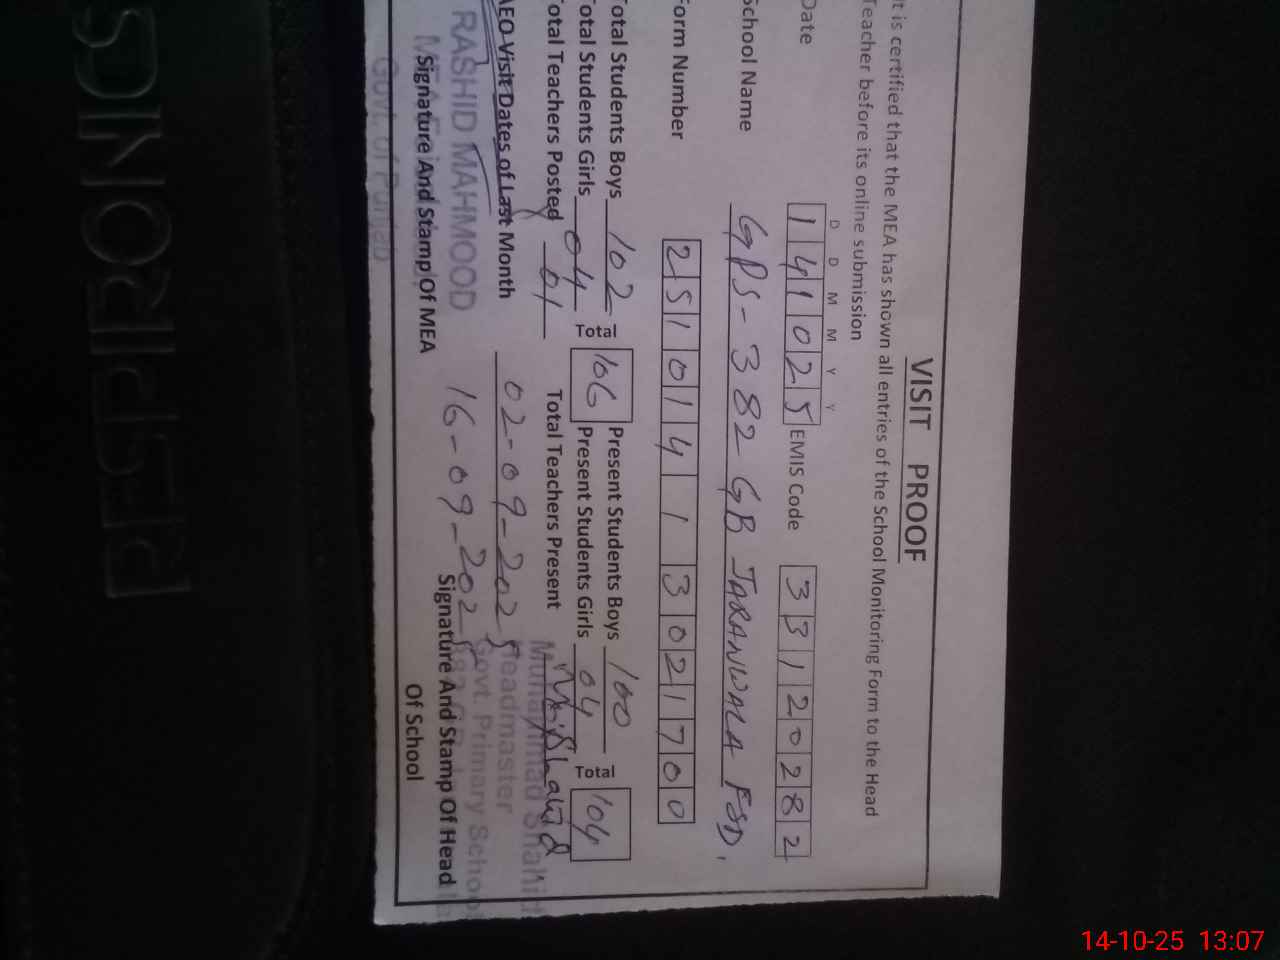 VISIT PROOF
It is certified that the MEA has shown all entries of the School Monitoring Form to the Head
Teacher before its online submission
D D M M Y Y
Date 1 4 1 0 2 5 EMIS Code 3 3 1 2 0 2 8 2
School Name GPS-382 GB JARANWALA FSD.
Form Number 2 5 1 0 1 4 1 3 0 2 1 7 0 0
Total Students Boys 102 Total 106 Present Students Boys 100 Total 104
Total Students Girls 04 Present Students Girls 04
Total Teachers Posted 01 Total Teachers Present
AEO Visit Dates of Last Month 02-09-2025
16-09-2025
RASHID MAHMOOD
MEA
Govt. of Punjab
Signature And Stamp Of MEA
Muhammad Shahid
Headmaster
Govt. Primary School
Signature And Stamp Of Head
Of School
RESPIRONICS
14-10-25 13:07